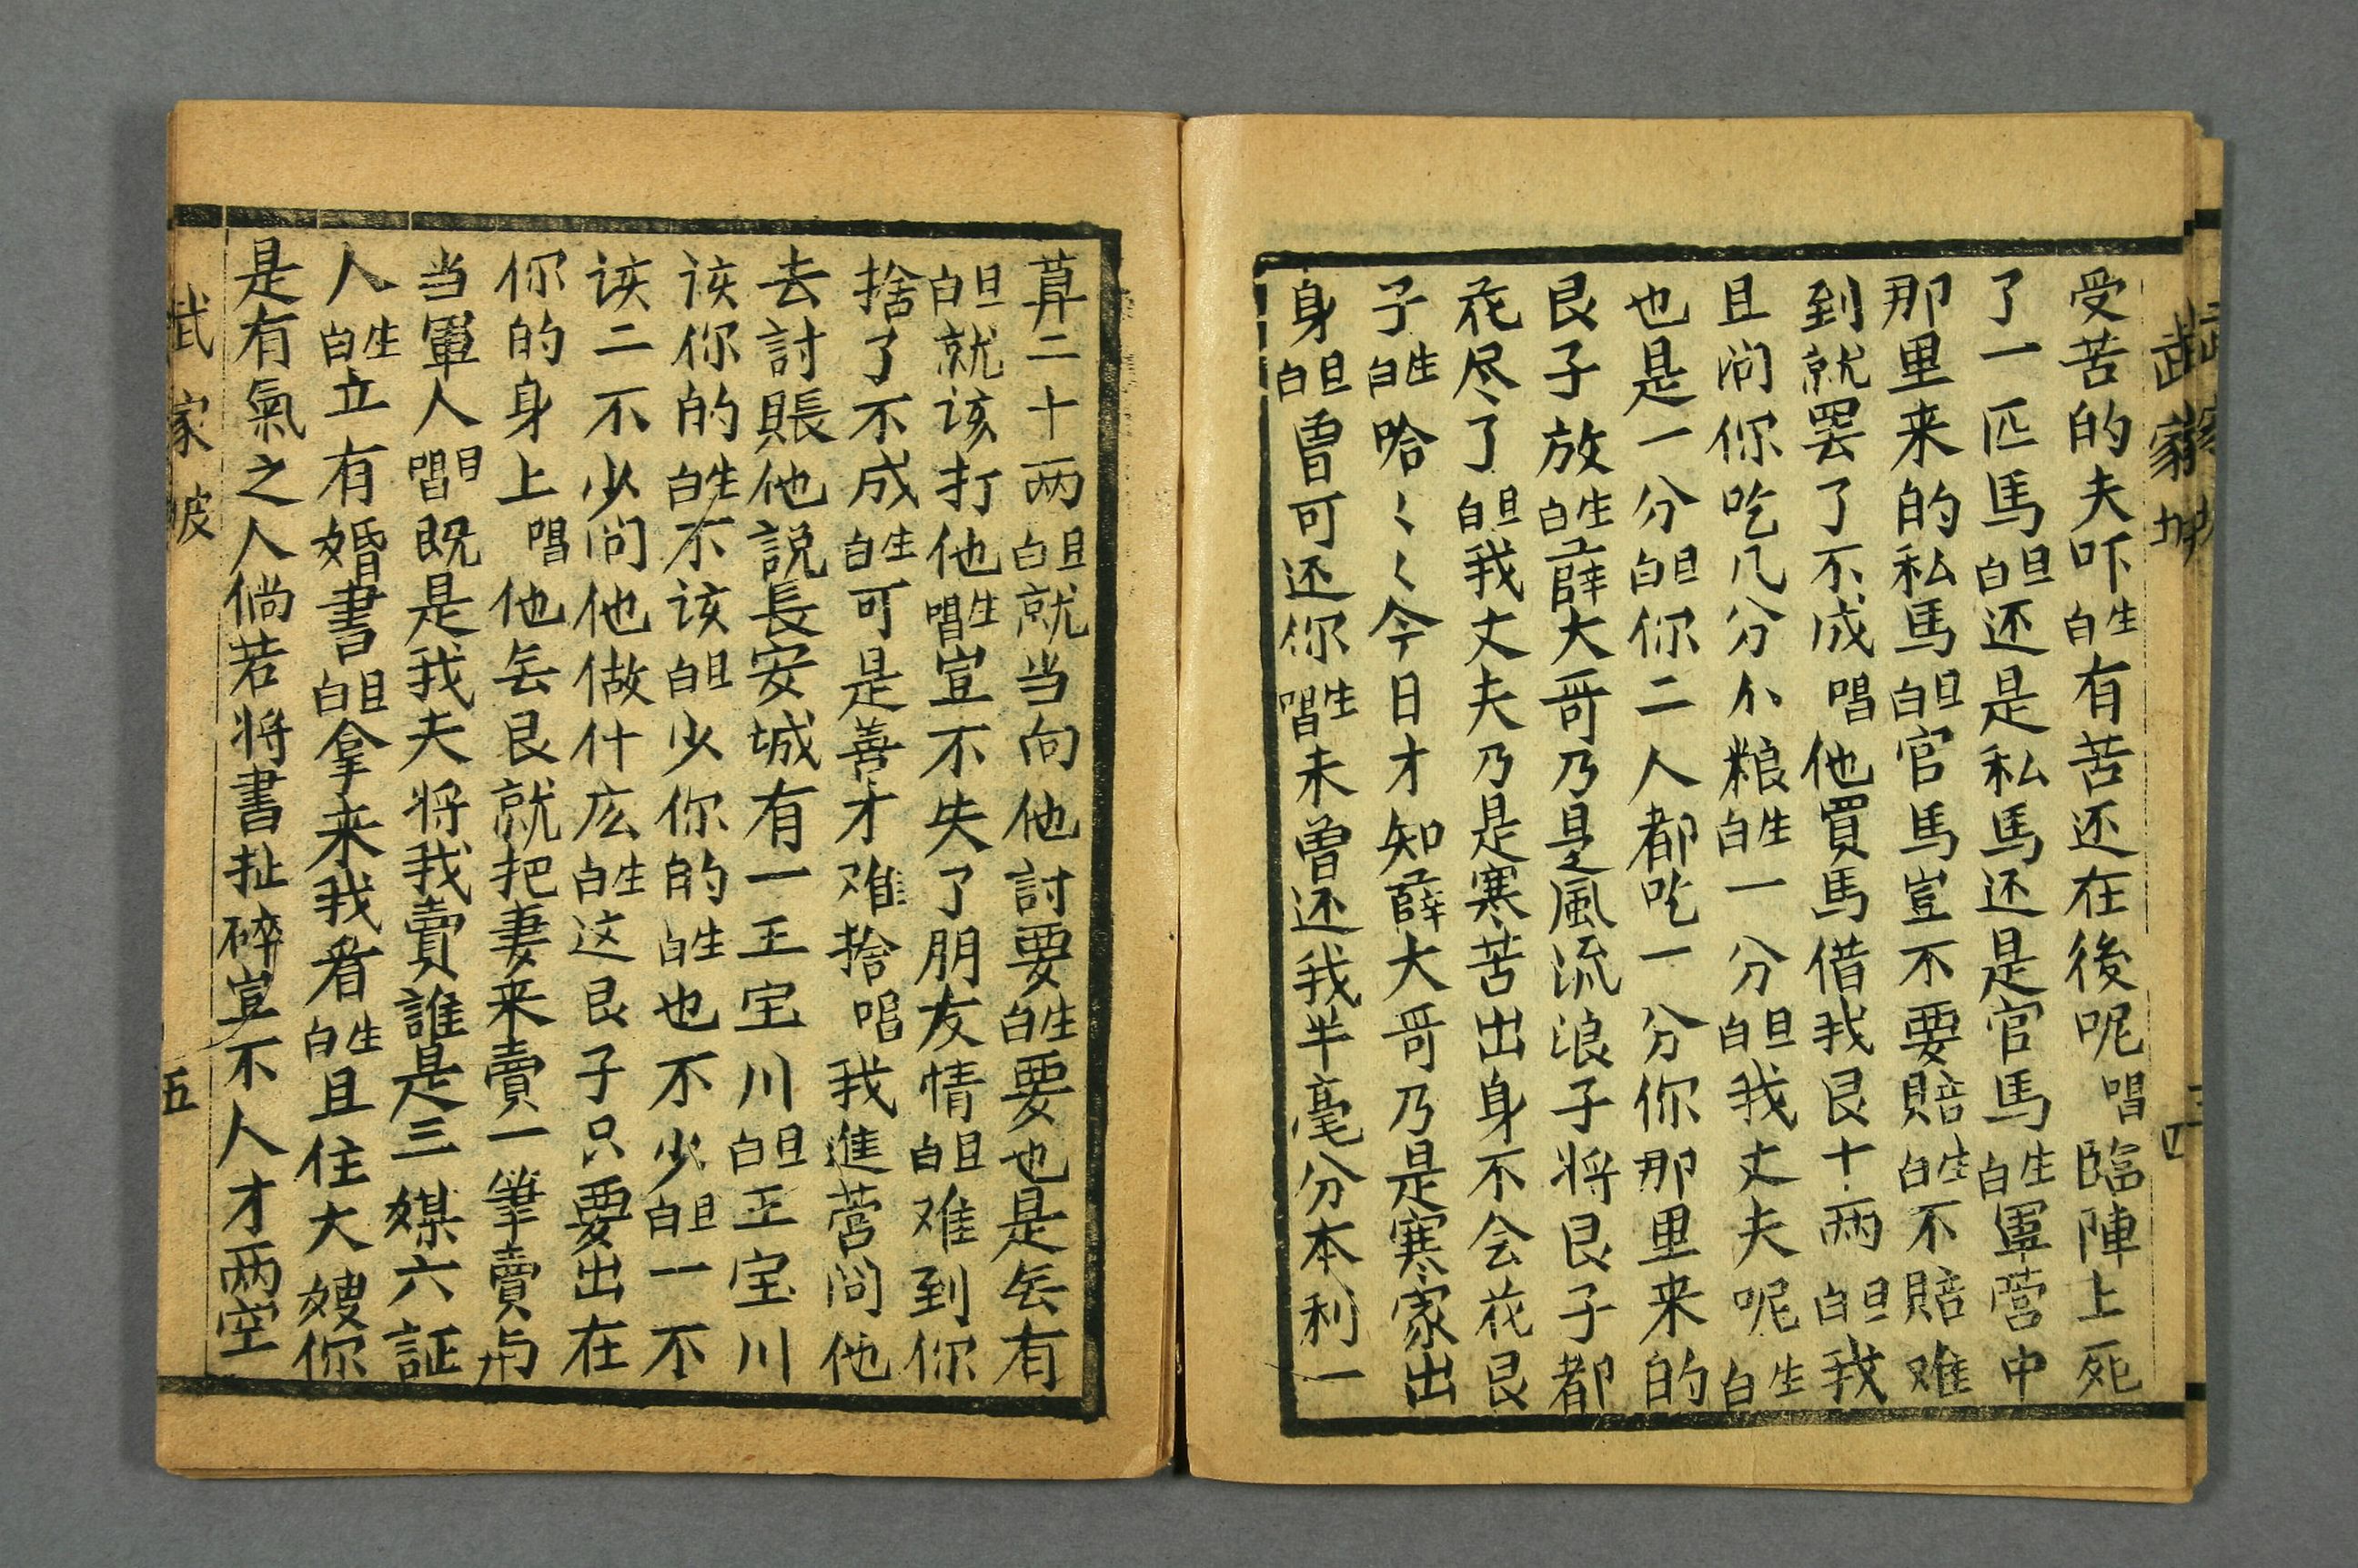 武家坡
四
受苦的夫吓生白有苦还在後呢唱臨陣上死
了一匹馬旦白还是私馬还是官馬生白軍营中
那里来的私馬旦白官馬岂不要賠生白不賠难
到就罢了不成唱他買馬借我艮十两旦白我
且问你吃几分小粮生白一分旦白我丈夫呢生白
也是一分旦白你二人都吃一分你那里来的
艮子放生白薛大哥乃是風流浪子将艮子都
花尽了旦白我丈夫乃是寒苦出身不会花艮
子生白哈〻〻今日才知薛大哥乃是寒家出
身旦白曾可还你生唱未曾还我半毫分本利一
算二十两旦白就当向他討要生白要也是无有
旦白就该打他生唱岂不失了朋友情旦白难到你
捨了不成生白可是善才难捨唱我進营问他
去討賬他説長安城有一王宝川旦白王宝川
该你的生白不该旦白少你的生白也不少旦白一不
该二不少问他做什庅生白这艮子只要出在
你的身上唱他无艮就把妻来賣一筆賣与
当軍人旦唱既是我夫将我賣誰是三媒六証
人生白立有婚書旦白拿来我看生白且住大嫂你
是有氣之人倘若将書扯碎岂不人才两空
武家坡
五